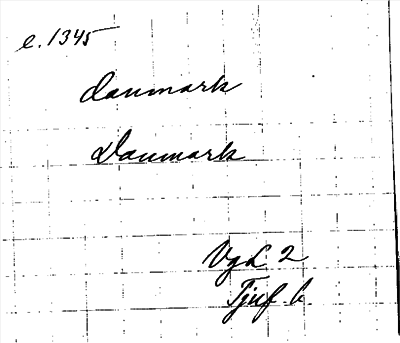 e. 1345
danmark
Danmark
VgL 2
Tjuf. b.